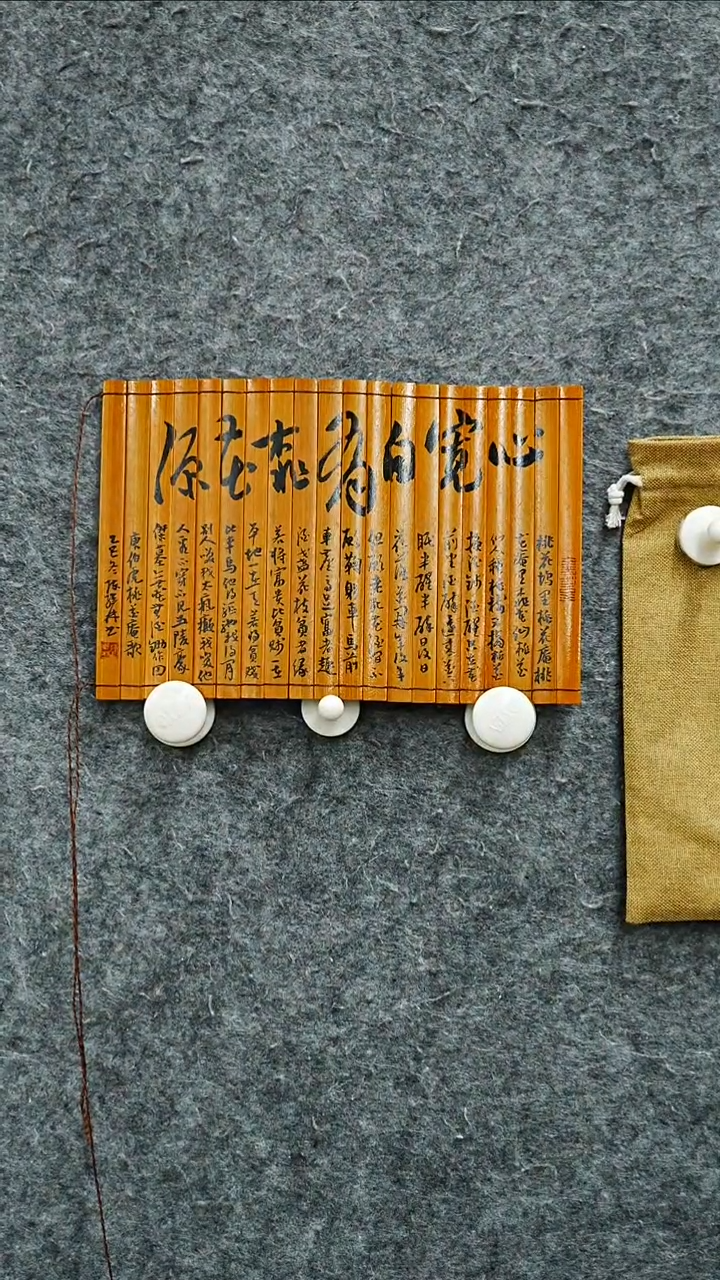 心寬自有桃花源
桃花塢里桃花庵桃
花庵里桃花仙桃花
仙人種桃樹又摘桃花
換酒錢酒醒只在花
前坐酒醉還來花下
眠半醒半醉日復日
花落花開年復年
但願老死花酒間不
願鞠躬車馬前
車塵馬足富者趣
酒盞花枝貧者緣
若將富貴比貧賤一在
平地一在天若將貧賤
比車馬他得驅馳我得閑
別人笑我太瘋癲我笑他
人看不穿不見五陵豪
傑墓無花無酒鋤作田
唐伯虎桃花庵歌
乙巳冬